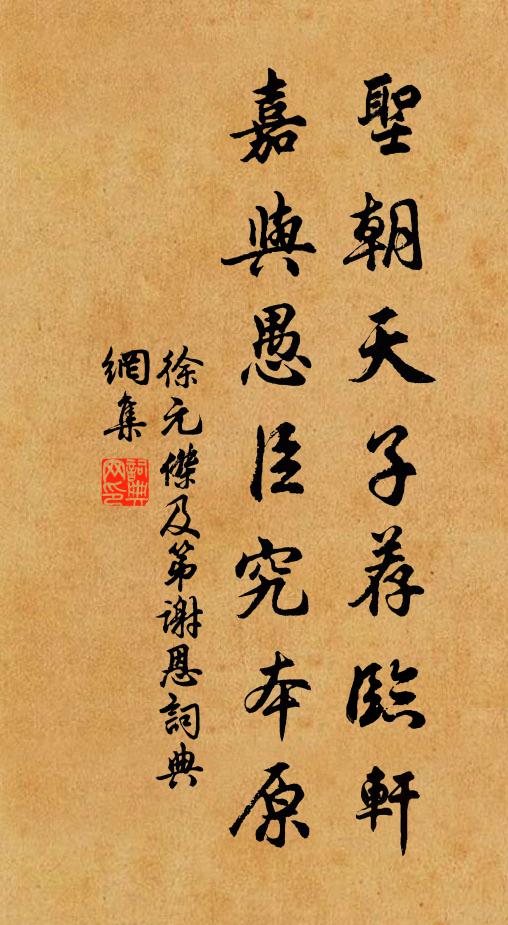 聖朝天子荐臨軒
嘉與愚臣究本原
徐元傑及第謝恩詞典
網集
詞典
网印